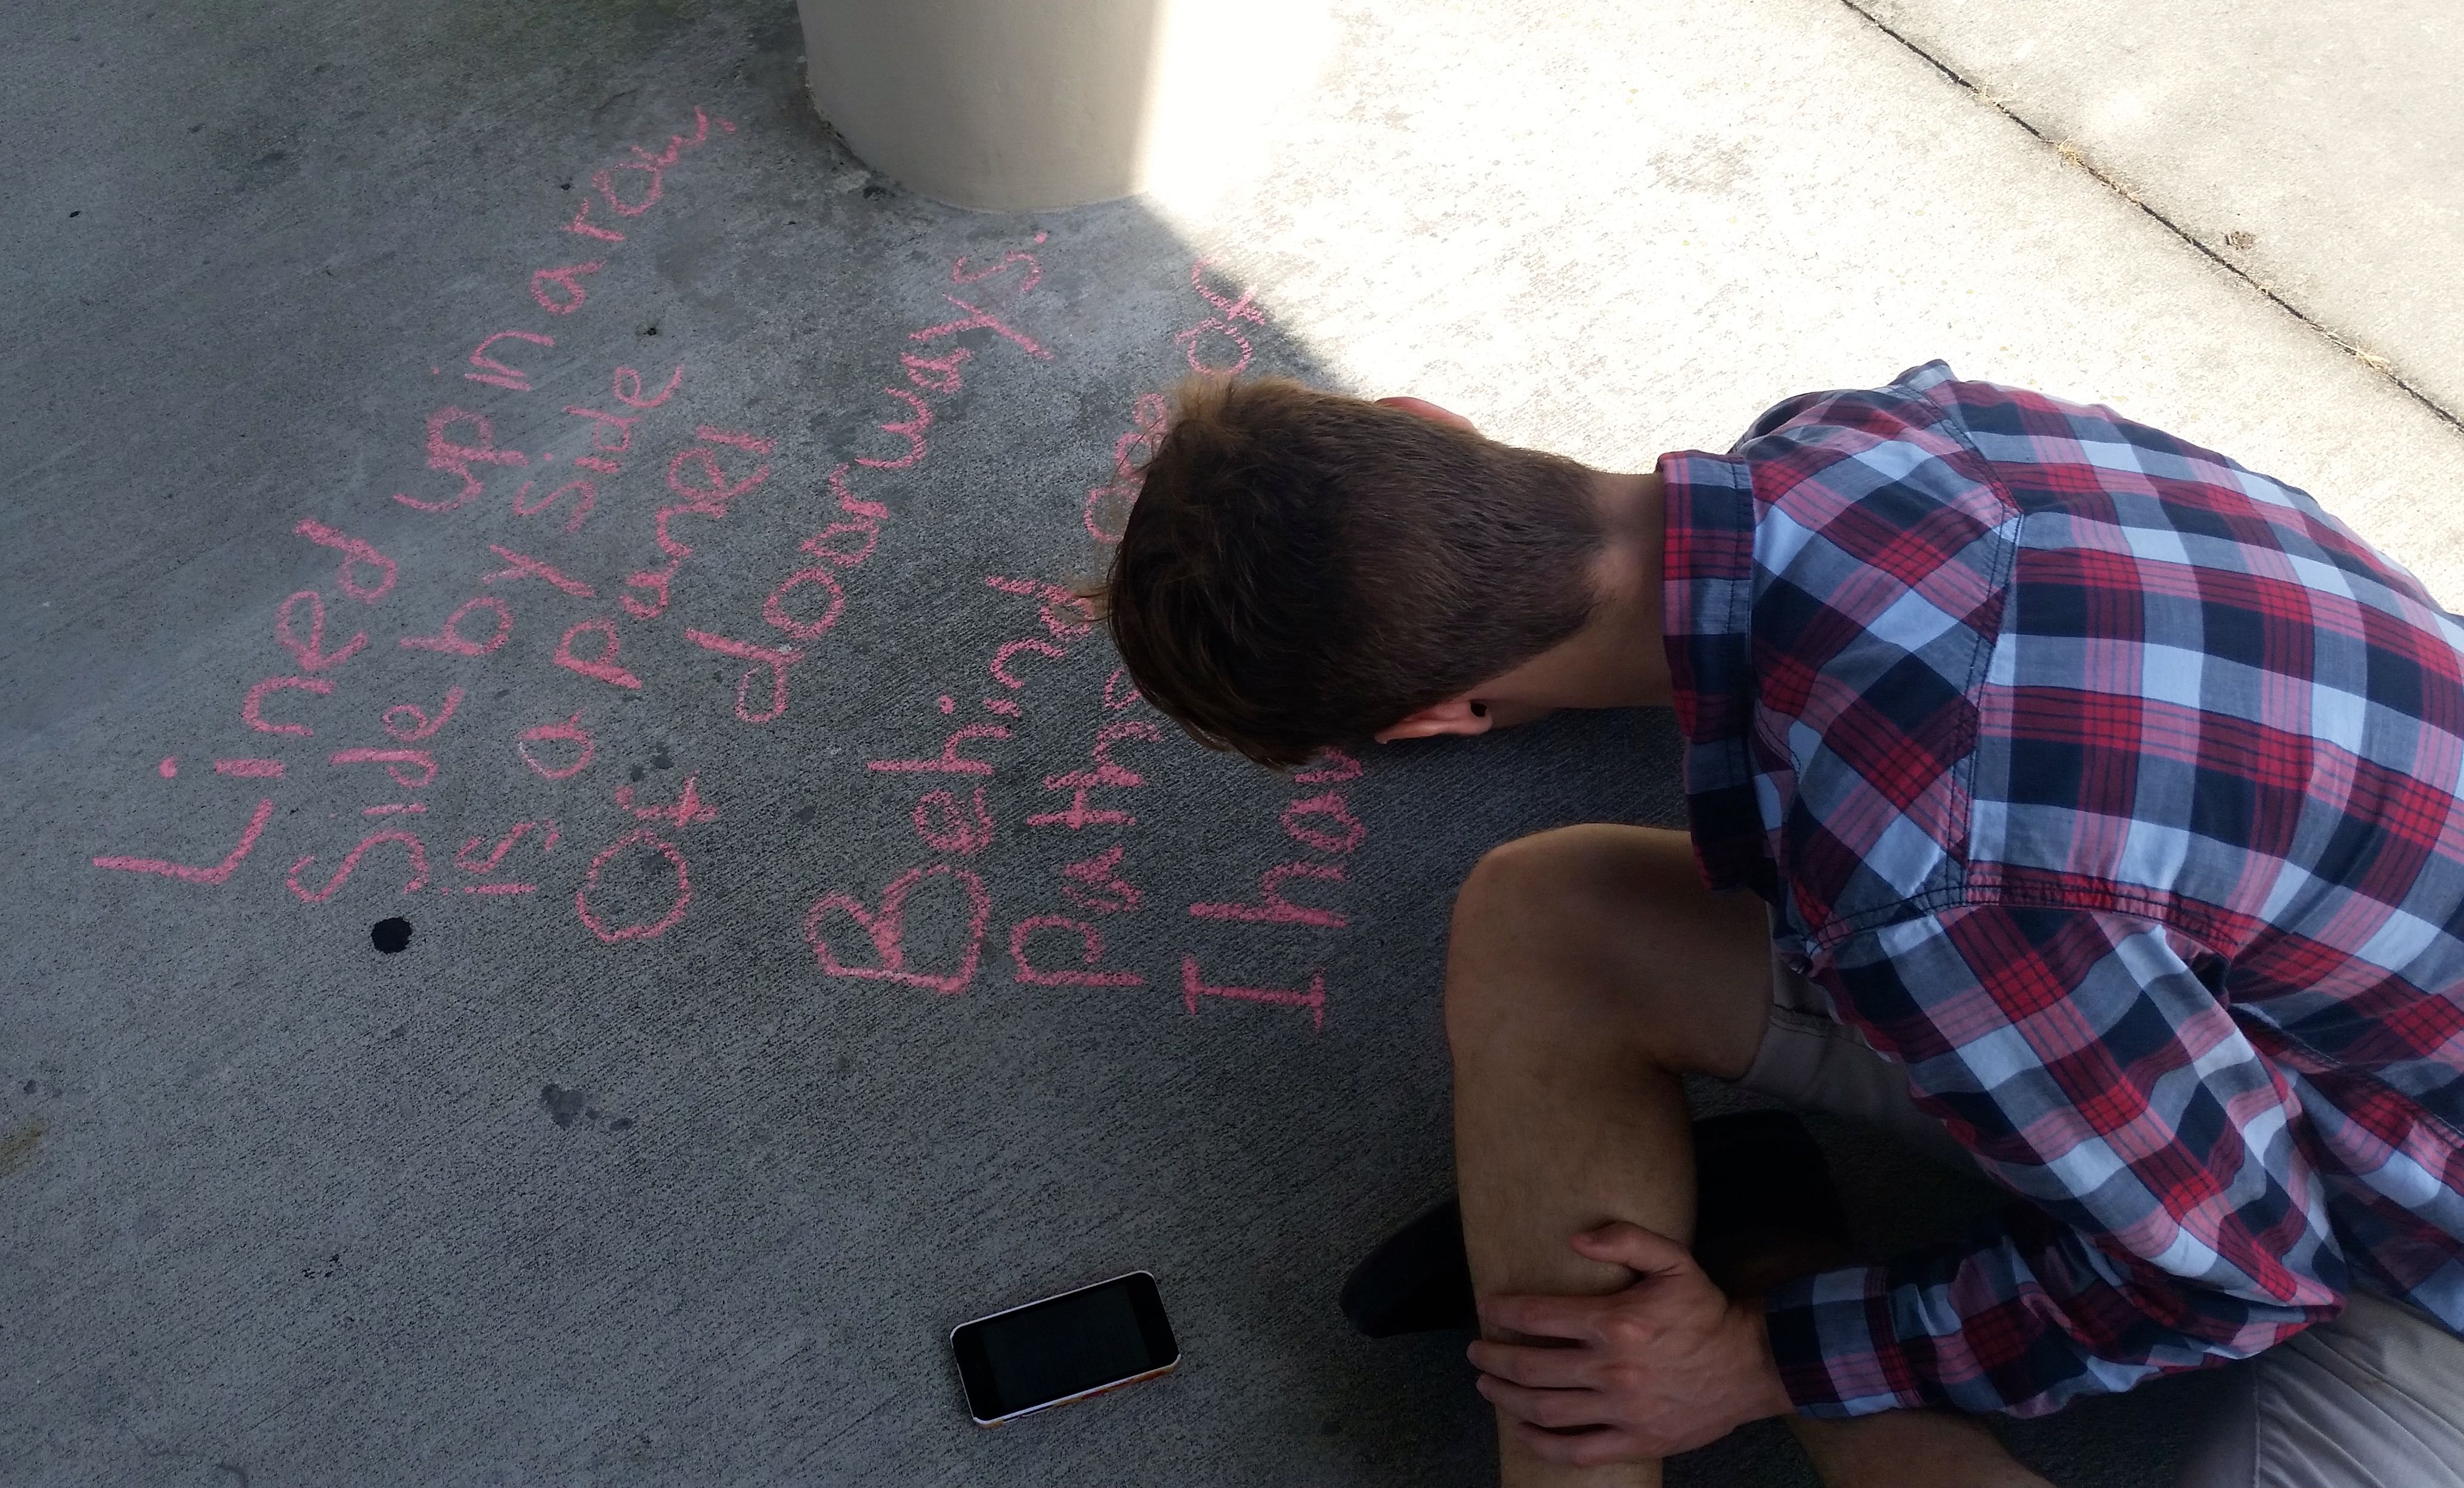 Lined up in a row,
Side by side
is a panel
Of doorways.
Behind one of
Paths
I